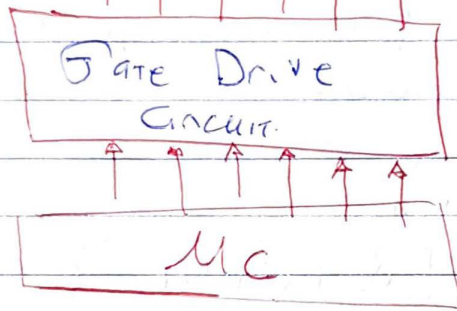 Gate Drive
Circuit.
MC